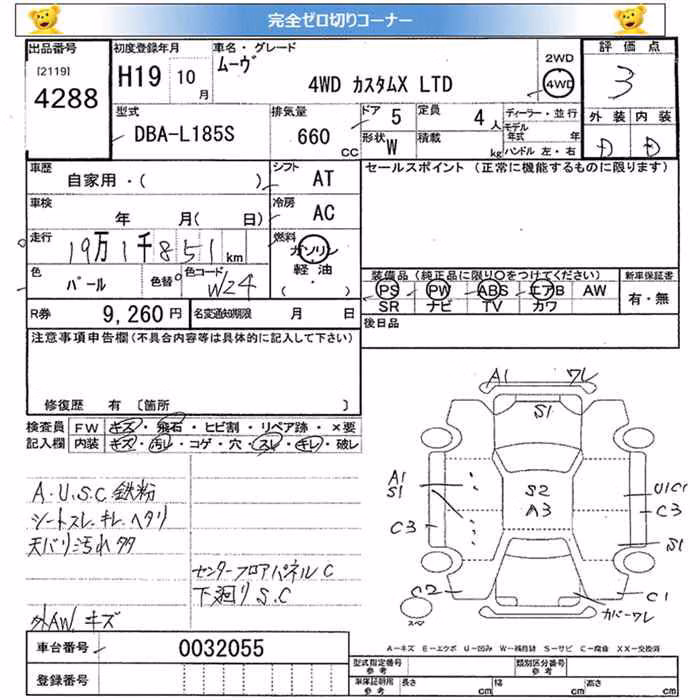 完全ゼロ切りコーナー
出品番号 初度登録年月 車名・グレード 評価点
[2119] 4288
H19 10月
ムーヴ
4WD カスタムX LTD
2WD
4WD
3
型式 DBA-L185S
排気量 660 CC
ドア 5 定員 4人
形状 W 積載 kg
ディーラー・並行
モデル年式 年
ハンドル 左・右
外装 内装
D D
車歴 自家用・( )
シフト AT
セールスポイント (正常に機能するものに限ります)
車検 年 月( 日)
冷房 AC
走行 19万1千851km
燃料 ガソリン
軽油
( ・ )
色 パール 色替 色コード W24
装備品 (純正品に限り○をつけてください) 新車保証書
PS PW ABS エアB AW
SR ナビ TV カワ
有・無
R券 9,260円 名変通知期限 月 日
後日品
注意事項申告欄(不具合内容等は具体的に記入して下さい)
修復歴 有 [箇所 ]
検査員 FW キズ・飛石・ヒビ割・リペア跡・×要
記入欄 内装 キズ・汚レ・コゲ・穴・スレ・キレ・破レ
A.U.S.C 鉄粉
シートスレ.キレ.ヘタリ
天バリ汚れタタ
センターフロアパネルC
下廻りS.C
外AW.キズ
A1 ワレ
S1
A1
S1
S2
A3
U1C1
C3
C3
S1
C2
C1
カバーワレ
スペ
A-キズ E-エクボ U-凹み W-補修跡 S-サビ C-腐食 XX-交換済
車台番号 0032055
登録番号
型式指定番号 参考 類別区分番号 参考
車庫証明用 参考 長さ cm 幅 cm 高さ cm